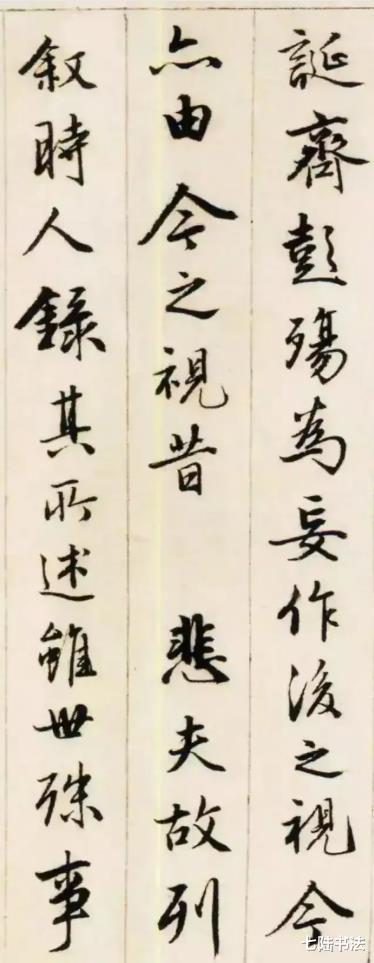 誕齊彭殤為妄作後之視今
亦由今之視昔 悲夫故列
叙時人録其所述雖世殊事
七陆书法